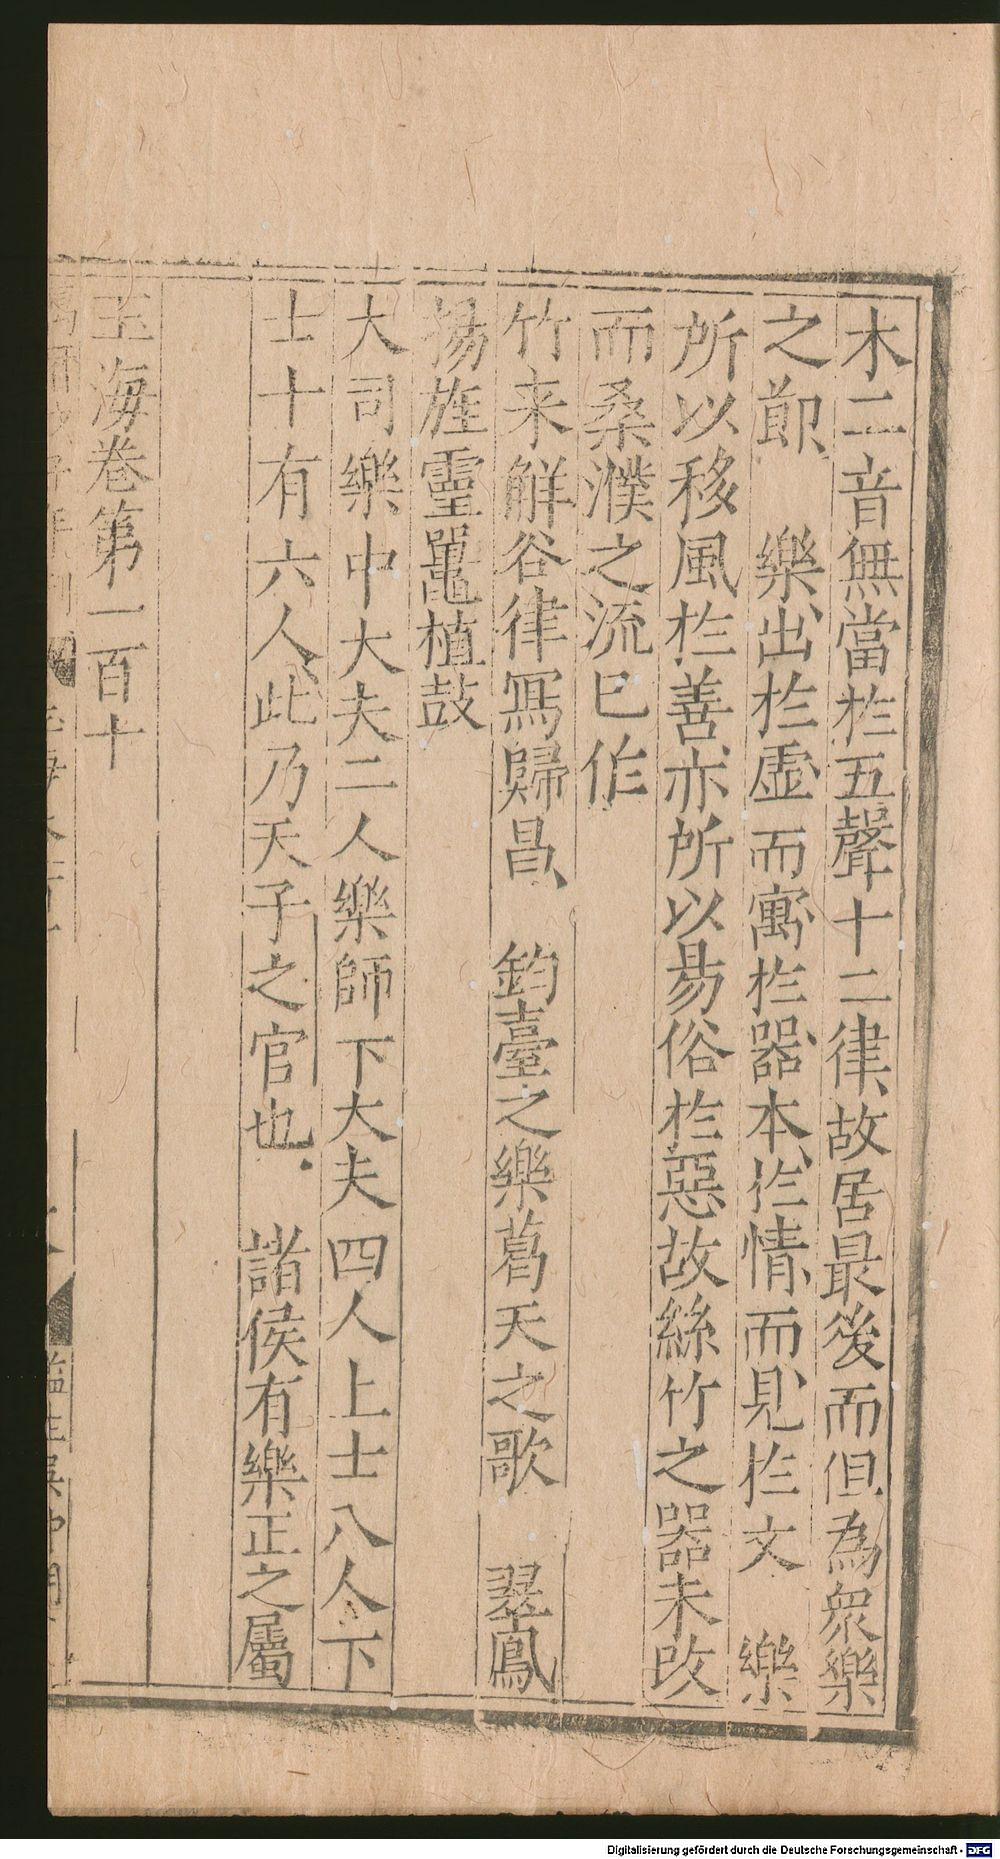 木二音無當於五聲十二律故居最後而但為衆樂
之節　樂出於虚而寓於器本於情而見於文　樂
所以移風於善亦所以易俗於惡故絲竹之器未改
而桑濮之流已作
竹来解谷律寫歸昌　鈞臺之樂葛天之歌　翠鳳
揚旌靈鼉植鼓
大司樂中大夫二人樂師下大夫四人上士八人下
士十有六人此乃天子之官也　諸侯有樂正之屬
玉海卷第一百十
Digitalisierung gefördert durch die Deutsche Forschungsgemeinschaft - DFG